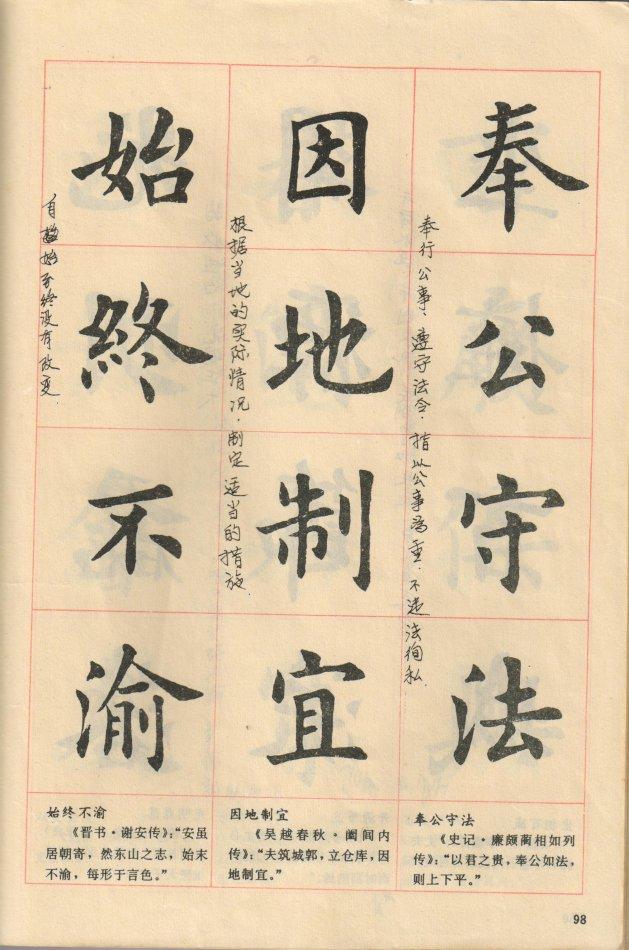 奉公守法
奉行公事，遵守法令，指以公事为重，不违法徇私
因地制宜
根据当地的实际情况，制定适当的措施
始终不渝
自始至终没有改变
奉公守法
《史记·廉颇蔺相如列
传》：“以君之贵，奉公如法，
则上下平。”
因地制宜
《吴越春秋·阖闾内
传》：“夫筑城郭，立仓库，因
地制宜。”
始终不渝
《晋书·谢安传》：“安虽
居朝寄，然东山之志，始末
不渝，每形于言色。”
98